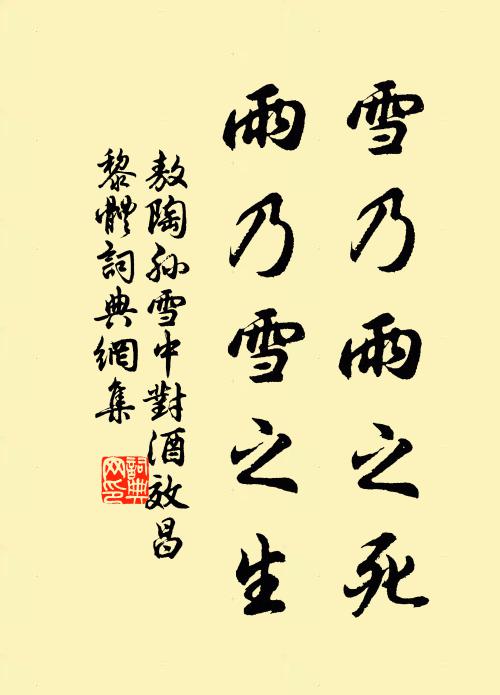 雪乃雨之死
雨乃雪之生
敖陶孫雪中對酒效昌
黎體詞典網集
詞典
网印